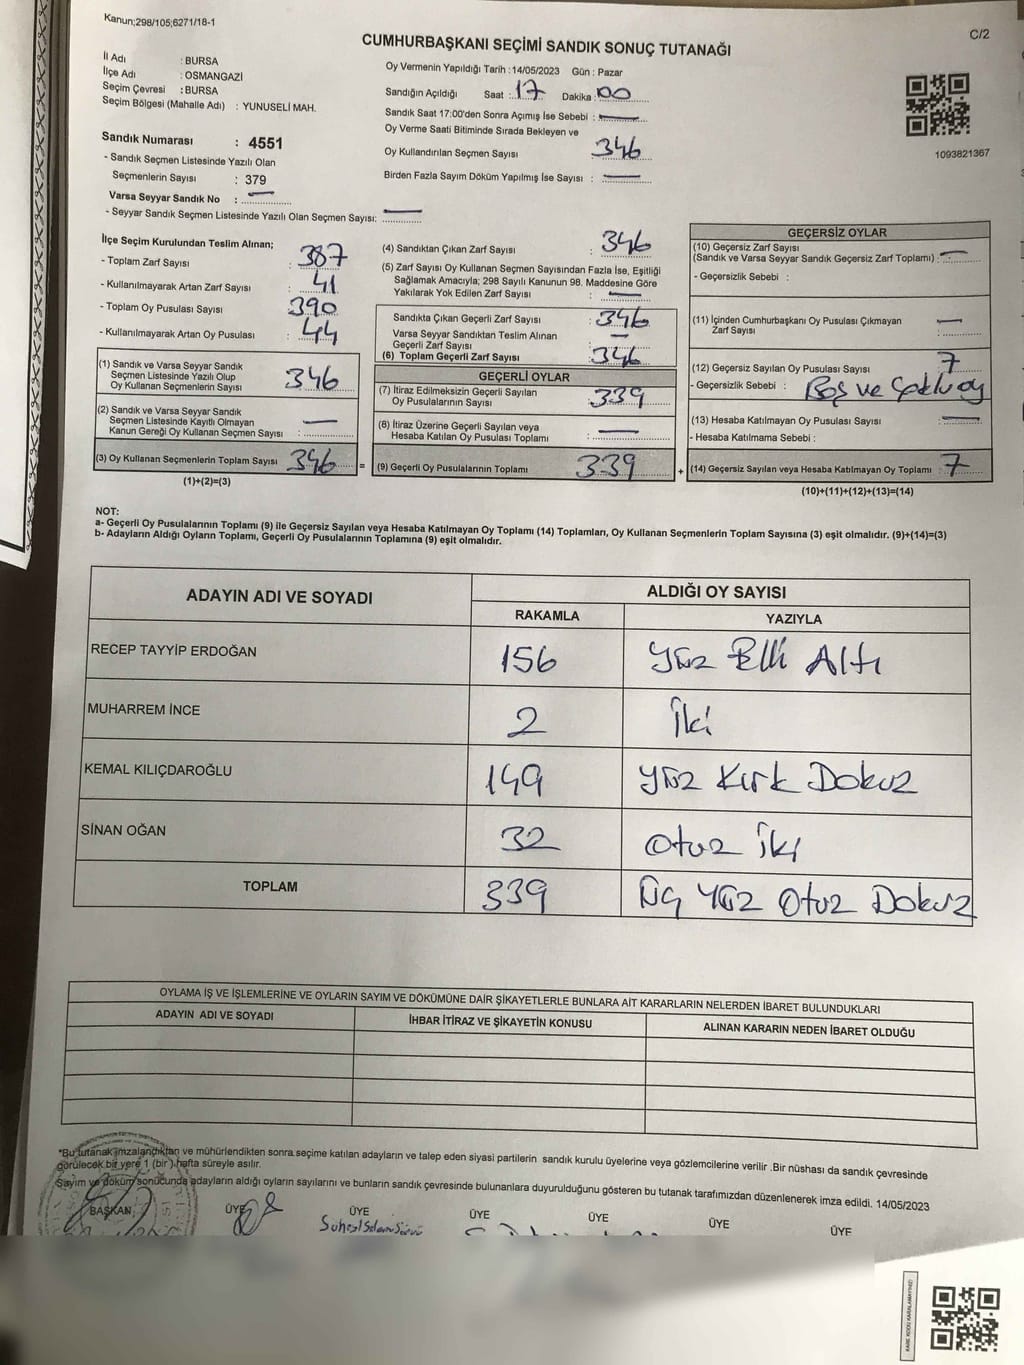 Kanun;298/105;6271/18-1
C/2
CUMHURBAŞKANI SEÇİMİ SANDIK SONUÇ TUTANAĞI
İl Adı : BURSA
İlçe Adı : OSMANGAZİ
Seçim Çevresi : BURSA
Seçim Bölgesi (Mahalle Adı) : YUNUSELİ MAH.
Sandık Numarası : 4551
- Sandık Seçmen Listesinde Yazılı Olan
Seçmenlerin Sayısı : 379
Varsa Seyyar Sandık No :
- Seyyar Sandık Seçmen Listesinde Yazılı Olan Seçmen Sayısı:
Oy Vermenin Yapıldığı Tarih :14/05/2023 Gün : Pazar
Sandığın Açıldığı Saat : 17 Dakika : 00
Sandık Saat 17:00'den Sonra Açımış İse Sebebi :
Oy Verme Saati Bitiminde Sırada Bekleyen ve
Oy Kullandırılan Seçmen Sayısı 346
Birden Fazla Sayım Döküm Yapılmış İse Sayısı :
1093821367
İlçe Seçim Kurulundan Teslim Alınan;
- Toplam Zarf Sayısı : 387
- Kullanılmayarak Artan Zarf Sayısı : 41
- Toplam Oy Pusulası Sayısı : 390
- Kullanılmayarak Artan Oy Pusulası : 44
(1) Sandık ve Varsa Seyyar Sandık
Seçmen Listesinde Yazılı Olup
Oy Kullanan Seçmenlerin Sayısı 346
(2) Sandık ve Varsa Seyyar Sandık
Seçmen Listesinde Kayıtlı Olmayan
Kanun Gereği Oy Kullanan Seçmen Sayısı :
(3) Oy Kullanan Seçmenlerin Toplam Sayısı 346
(1)+(2)=(3)
=
(4) Sandıktan Çıkan Zarf Sayısı : 346
(5) Zarf Sayısı Oy Kullanan Seçmen Sayısından Fazla İse, Eşitliği
Sağlamak Amacıyla; 298 Sayılı Kanunun 98. Maddesine Göre
Yakılarak Yok Edilen Zarf Sayısı :
Sandıkta Çıkan Geçerli Zarf Sayısı : 346
Varsa Seyyar Sandıktan Teslim Alınan
Geçerli Zarf Sayısı :
(6) Toplam Geçerli Zarf Sayısı 346
GEÇERLİ OYLAR
(7) İtiraz Edilmeksizin Geçerli Sayılan
Oy Pusulalarının Sayısı : 339
(8) İtiraz Üzerine Geçerli Sayılan veya
Hesaba Katılan Oy Pusulası Toplamı :
(9) Geçerli Oy Pusulalarının Toplamı 339
+
GEÇERSİZ OYLAR
(10) Geçersiz Zarf Sayısı
(Sandık ve Varsa Seyyar Sandık Geçersiz Zarf Toplamı) :
- Geçersizlik Sebebi :
(11) İçinden Cumhurbaşkanı Oy Pusulası Çıkmayan
Zarf Sayısı :
(12) Geçersiz Sayılan Oy Pusulası Sayısı : 7
- Geçersizlik Sebebi : Boş ve Çoklu oy
(13) Hesaba Katılmayan Oy Pusulası Sayısı :
- Hesaba Katılmama Sebebi :
(14) Geçersiz Sayılan veya Hesaba Katılmayan Oy Toplamı : 7
(10)+(11)+(12)+(13)=(14)
NOT:
a- Geçerli Oy Pusulalarının Toplamı (9) ile Geçersiz Sayılan veya Hesaba Katılmayan Oy Toplamı (14) Toplamları, Oy Kullanan Seçmenlerin Toplam Sayısına (3) eşit olmalıdır. (9)+(14)=(3)
b- Adayların Aldığı Oyların Toplamı, Geçerli Oy Pusulalarının Toplamına (9) eşit olmalıdır.
ADAYIN ADI VE SOYADI ALDIĞI OY SAYISI
RAKAMLA YAZIYLA
RECEP TAYYİP ERDOĞAN 156 Yüz Elli Altı
MUHARREM İNCE 2 İki
KEMAL KILIÇDAROĞLU 149 Yüz Kırk Dokuz
SİNAN OĞAN 32 Otuz İki
TOPLAM 339 Üç Yüz Otuz Dokuz
OYLAMA İŞ VE İŞLEMLERİNE VE OYLARIN SAYIM VE DÖKÜMÜNE DAİR ŞİKAYETLERLE BUNLARA AİT KARARLARIN NELERDEN İBARET BULUNDUKLARI
ADAYIN ADI VE SOYADI İHBAR İTİRAZ VE ŞİKAYETİN KONUSU ALINAN KARARIN NEDEN İBARET OLDUĞU
*Bu tutanak imzalandıktan ve mühürlendikten sonra seçime katılan adayların ve talep eden siyasi partilerin sandık kurulu üyelerine veya gözlemcilerine verilir .Bir nüshası da sandık çevresinde
görülecek bir yere 1 (bir ) hafta süreyle asılır.
Sayım ve döküm sonucunda adayların aldığı oyların sayılarını ve bunların sandık çevresinde bulunanlara duyurulduğunu gösteren bu tutanak tarafımızdan düzenlenerek imza edildi. 14/05/2023
BAŞKAN ÜYE ÜYE ÜYE ÜYE ÜYE ÜYE
KARE KODU KARALAMAYINIZ!